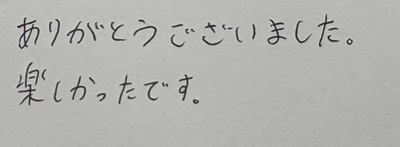 ありがとうございました。
楽しかったです。